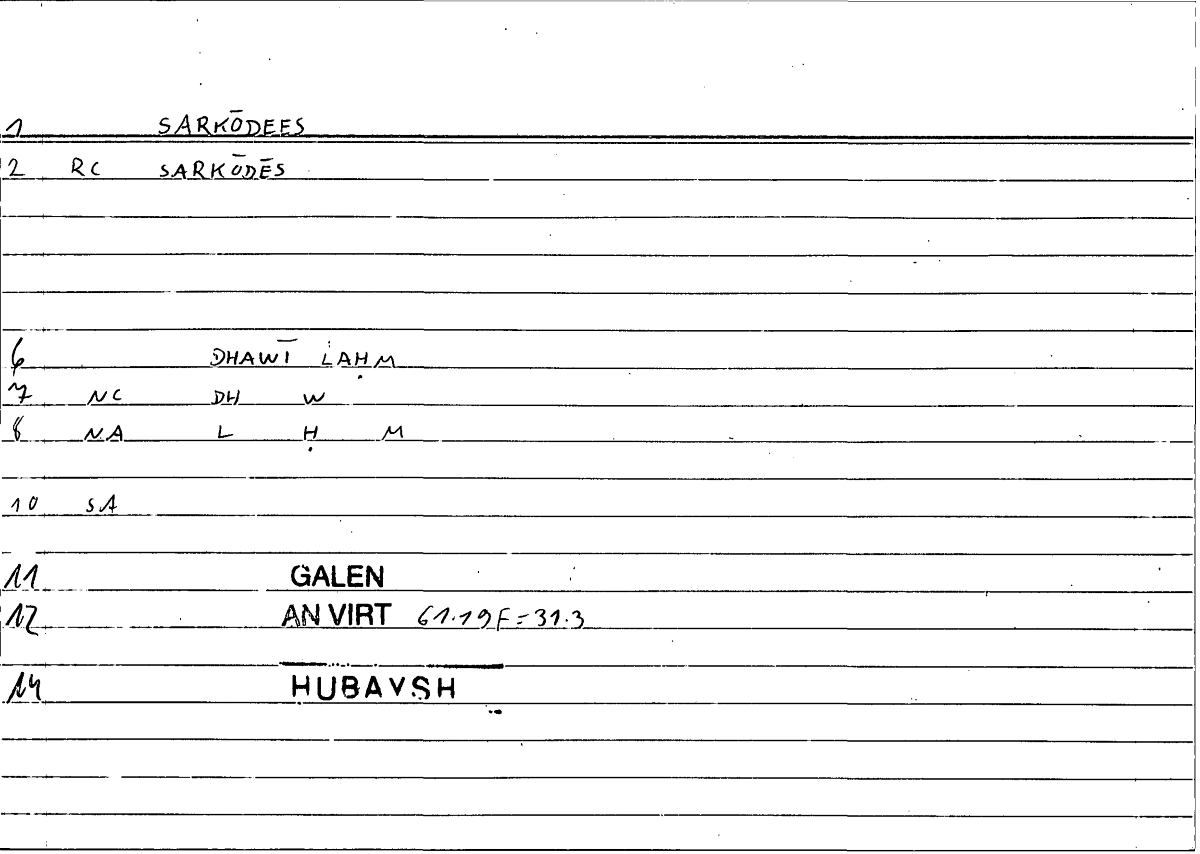 1 SARKŌDEES
2 RC SARKŌDĒS
6 DHAWĪ LAḤM
7 NC DH W
8 NA L Ḥ M
10 SA
11 GALEN
12 AN VIRT 61.19F=31.3
14 HUBAYSH